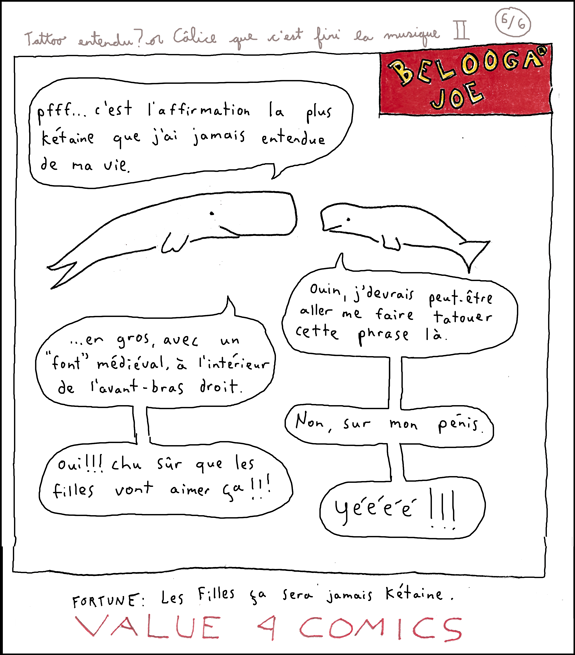 Tattoo entendu? or Câlice que c'est fini la musique II
6/6
BELOOGA
JOE
pfff... c'est l'affirmation la plus
kétaine que j'ai jamais entendue
de ma vie.
Ouin, j'devrais peut-être
aller me faire tatouer
cette phrase là.
...en gros, avec un
"font" médiéval, à l'intérieur
de l'avant-bras droit.
Non, sur mon pénis.
Oui!!! chu sûr que les
filles vont aimer ça!!!
yéééé!!!
FORTUNE: Les Filles ça sera jamais kétaine.
VALUE 4 COMICS